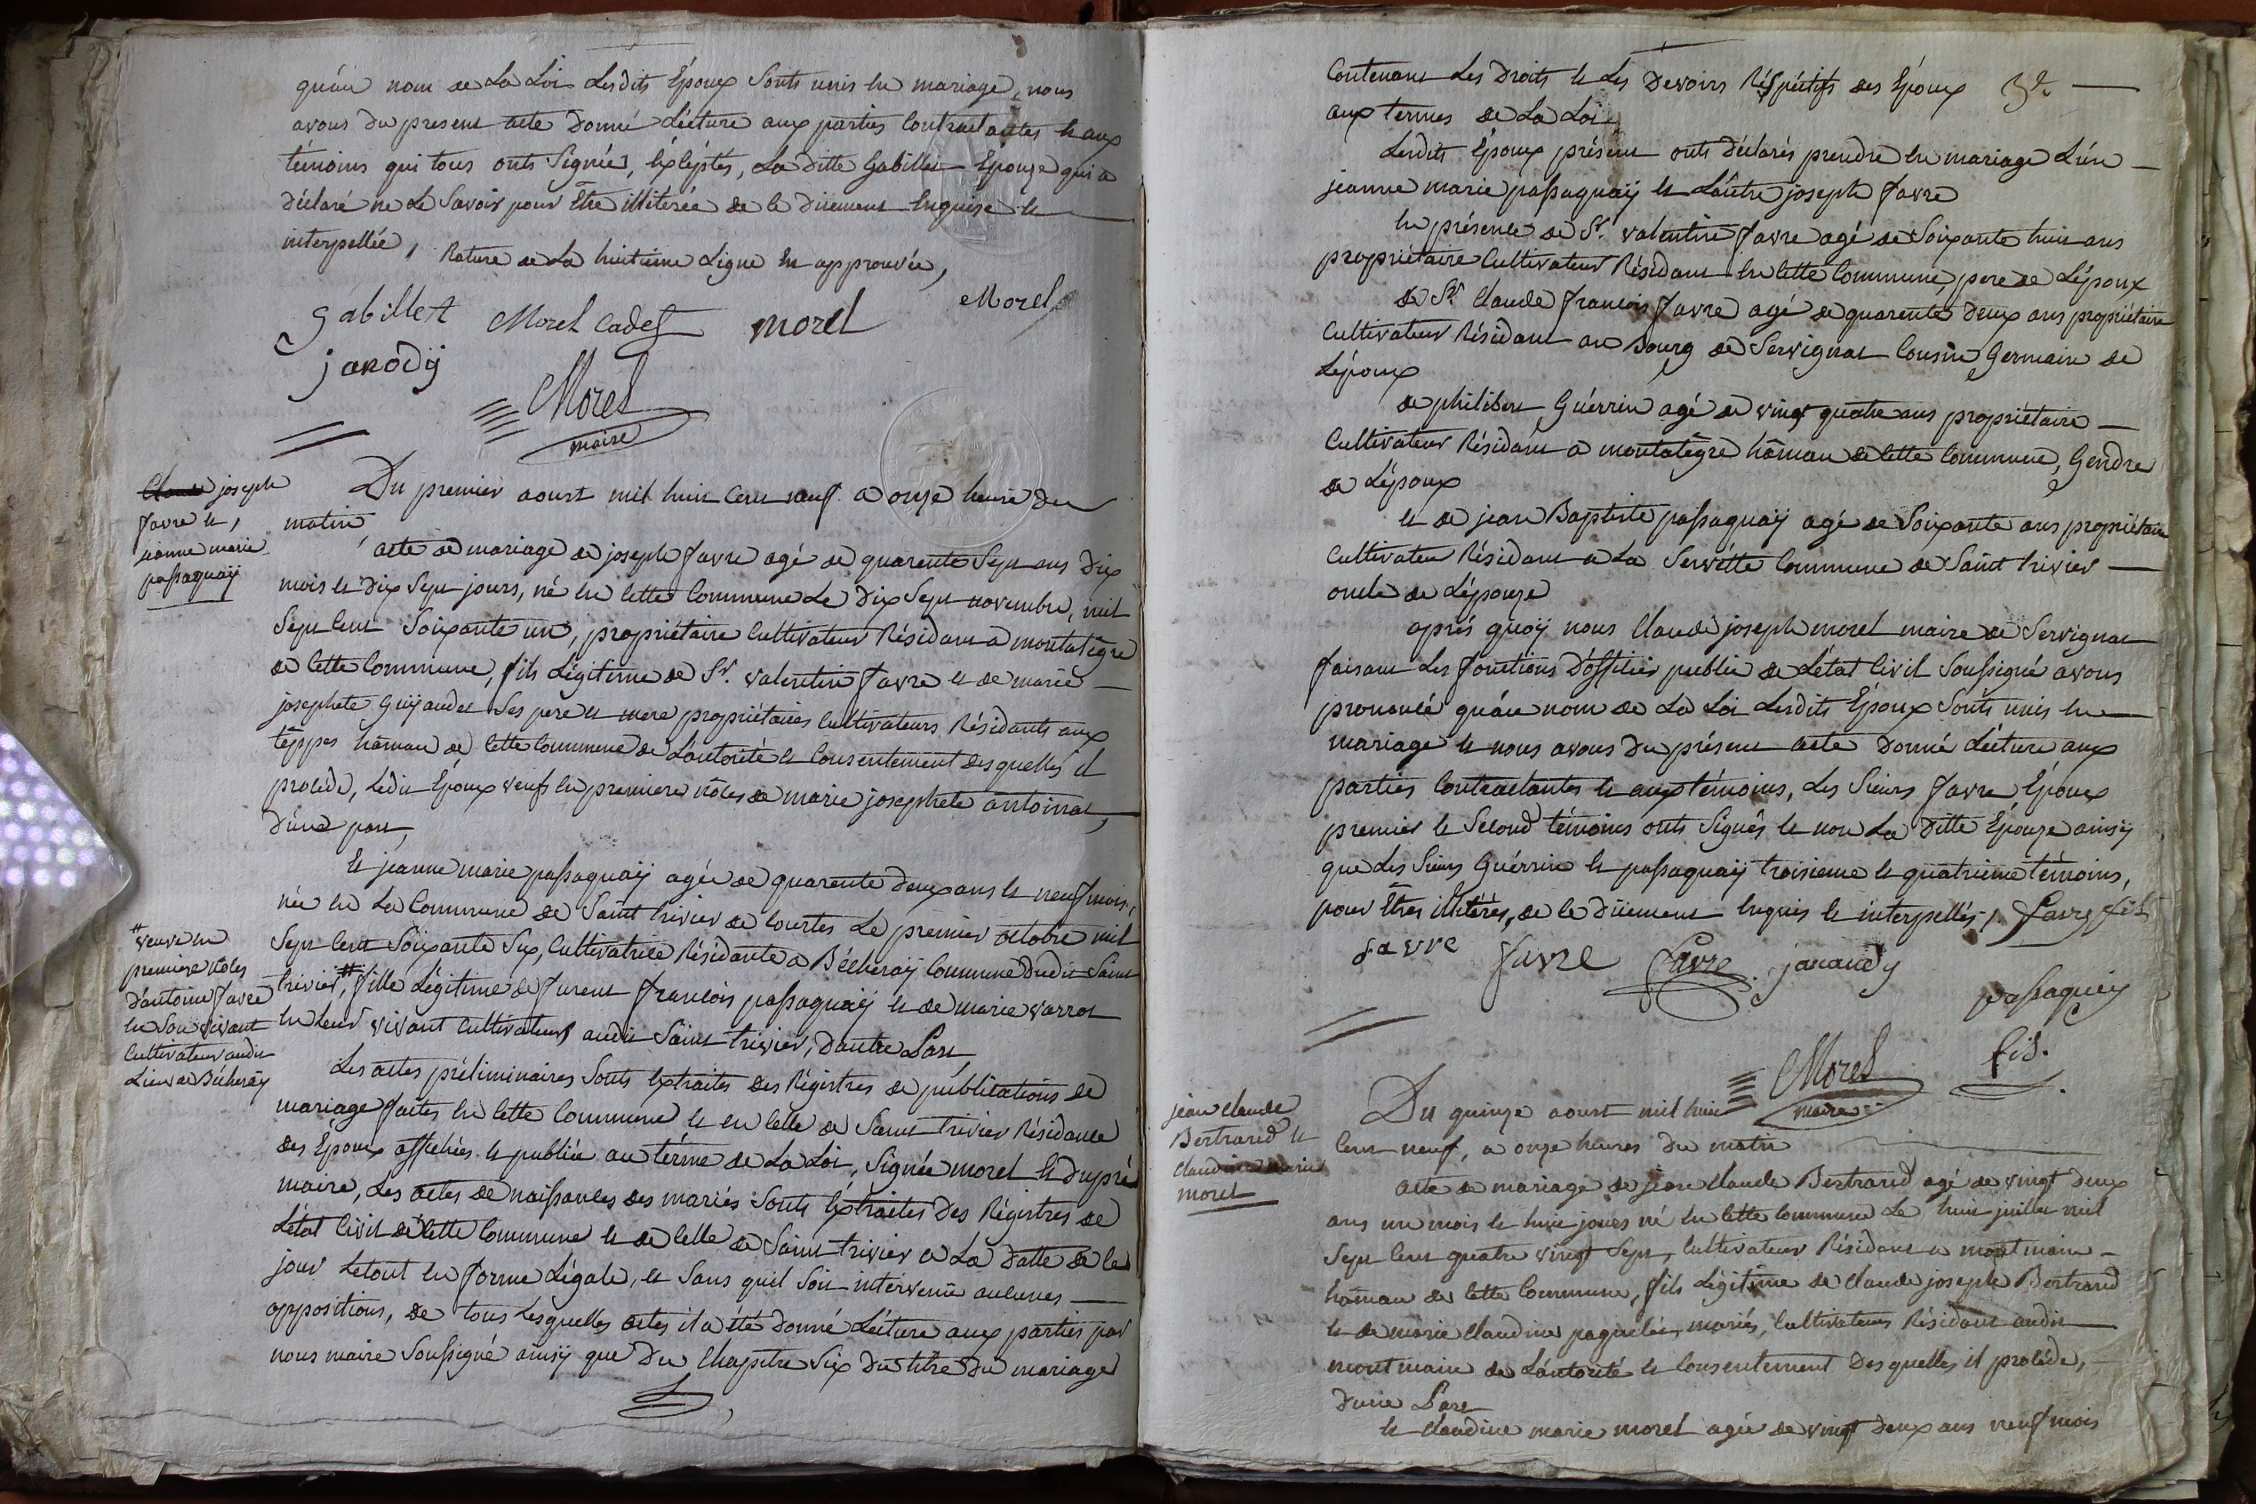 qu'au nom de La Loi Lesdits Époux sonts unis en mariage, nous
avons du present acte donné Lécture aux parties Contractantes et aux
témoins qui tous onts Signés, éxcéptés, La ditte Gabillet Epouze qui a
déclaré ne Le Savoir pour Être illiterée de ce düement Enquise et
interpellée, Rature de La huitieme Ligne En approuvée,
gabillet Morel Cadet morel Morel
jarodÿ
Morel
maire
Claude joseph
favre et,
jeanne marie
passaquaÿ
Du premier aoust mil huit Cent neuf a onze heure du
matin
acte de mariage de joseph favre agé de quarente Sept ans dix
mois et dix Sept jours, né en Cette Commune Le dix Sept novembre, mil
Sept Cent Soixante un, propriétaire Cultivateur Résidant a montalègre
de Cette Commune, fils Légitime de Sr. valentin favre et de marie
josephete Guÿaudet Ses pere et mere propriétaires Cultivateurs Résidants aux
téppes hâmau de Cette Commune de L'autorité et Consentement desquelles il
procéde, Ledit Époux veuf en premiere nôces de marie josephete antoinat,
d'une part,
Et jeanne marie passaquaÿ agée de quarente deux ans et neuf mois,
née en La Commune de Saint trivier de Courtes Le premier octobre mil
Sept Cent Soixante Six, Cultivatrice Résidante a Bécheraÿ Commune dudit Saint
trivier, # fille Légitime de furent francois passaquaÿ et de marie varrot
en Leur vivant Cultivateurs audit Saint trivier, d'autre Part,
# veuve en
premiere nôces
d'antoine favre
en Son vivant
Cultivateur audit
Lieu de Bécheraÿ
Les actes préliminaires Sonts Extraites des Régistres de publications de
mariage faites en Cette Commune et en Celle de Saint trivier Résidance
des Époux affichées et publiée au térme de La Loi, Signée morel et dupré
maire, Les actes de naissances des mariés Sonts Extraites des Régistres de
L'état Civil de Cette Commune et de Celle de Saint trivier a La datte de ce
jour Le tout en forme Légale, et Sans quil Soit intervenüe aulcunes
oppositions, de tous Lesquelles actes il a été donné Lécture aux parties par
nous maire Soussigné ainsÿ que du Chapitre Six du titre du mariage
Contenant Les Droits et Les Devoirs Réspéctifs des Époux
aux termes de La Loi,
Lesdits Époux présent onts déclarés prendre en mariage L'un
jeanne marie passaquaÿ et L'aûtre joseph favre
En présence de Sr. valentin favre agé de Soixante huit ans
propriétaire Cultivateur Résidant en Cette Commune, pere de L'époux
de Sr. Claude francois favre agé de quarente deux ans propriétaire
Cultivateur Résidant au Bourg de Servignat Cousin Germain de
L'époux
de philibert Guérrin agé de vingt quatre ans propriétaire
Cultivateur Résidant a montalègre hâmau de Cette Commune, Gendre
de L'époux
et de jean Baptiste passaquaÿ agé de Soixante ans propriétaire
Cultivateur Résidant a La Servétte Commune de Saint trivier
oncle de L'épouze
aprés quoÿ nous Claude joseph morel maire de Servignat
faisant Les fonctions d'officier public de L'état Civil Soussigné avons
prononcé qu'au nom de La Loi Lesdits Époux Sonts unis en
mariage et nous avons du présent acte donné Lécture aux
parties Contractantes et aux témoins, Les Sieurs favre Époux
premier et Second témoins onts Signés et non La ditte Épouze ainsÿ
que Les Sieurs Guérrin et passaquaÿ troisieme et quatrieme témoins,
pour Êtres illitérés, de ce düement Enquis et interpellés, favre fils
favre favre favre jaraudÿ
passaquay
fils.
Morel
maire
jean Claude
Bertrand et
Claudine marie
morel
Du quinze aoust mil huit
Cent neuf, a onze heures du matin
acte de mariage de jean Claude Bertrand agé de vingt deux
ans un mois et huit jours né en Cette Commune Le huit juillet mil
Sept Cent quatre vingt Sept, Cultivateur Résidant a montmain
hâmau de Cette Commune, fils Légitime de Claude joseph Bertrand
et de marie Claudine paquelet, mariés, Cultivateurs Résidant audit
montmain de L'autorité et Consentement desquelles il procéde,
d'une Part
et Claudine marie morel agée de vingt deux ans neuf mois